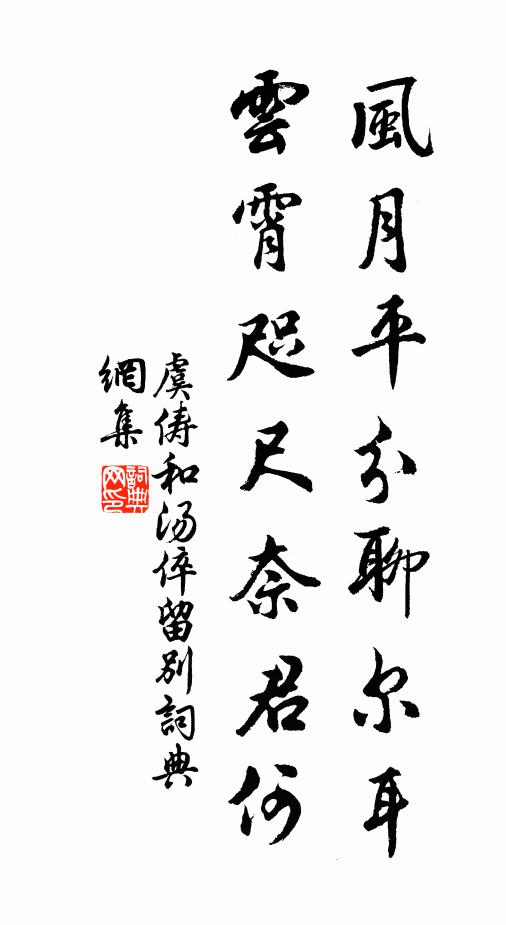 風月平分聊尔耳
雲霄咫尺奈君何
虞俦和汤倅留别詞典
網集
詞典
网印